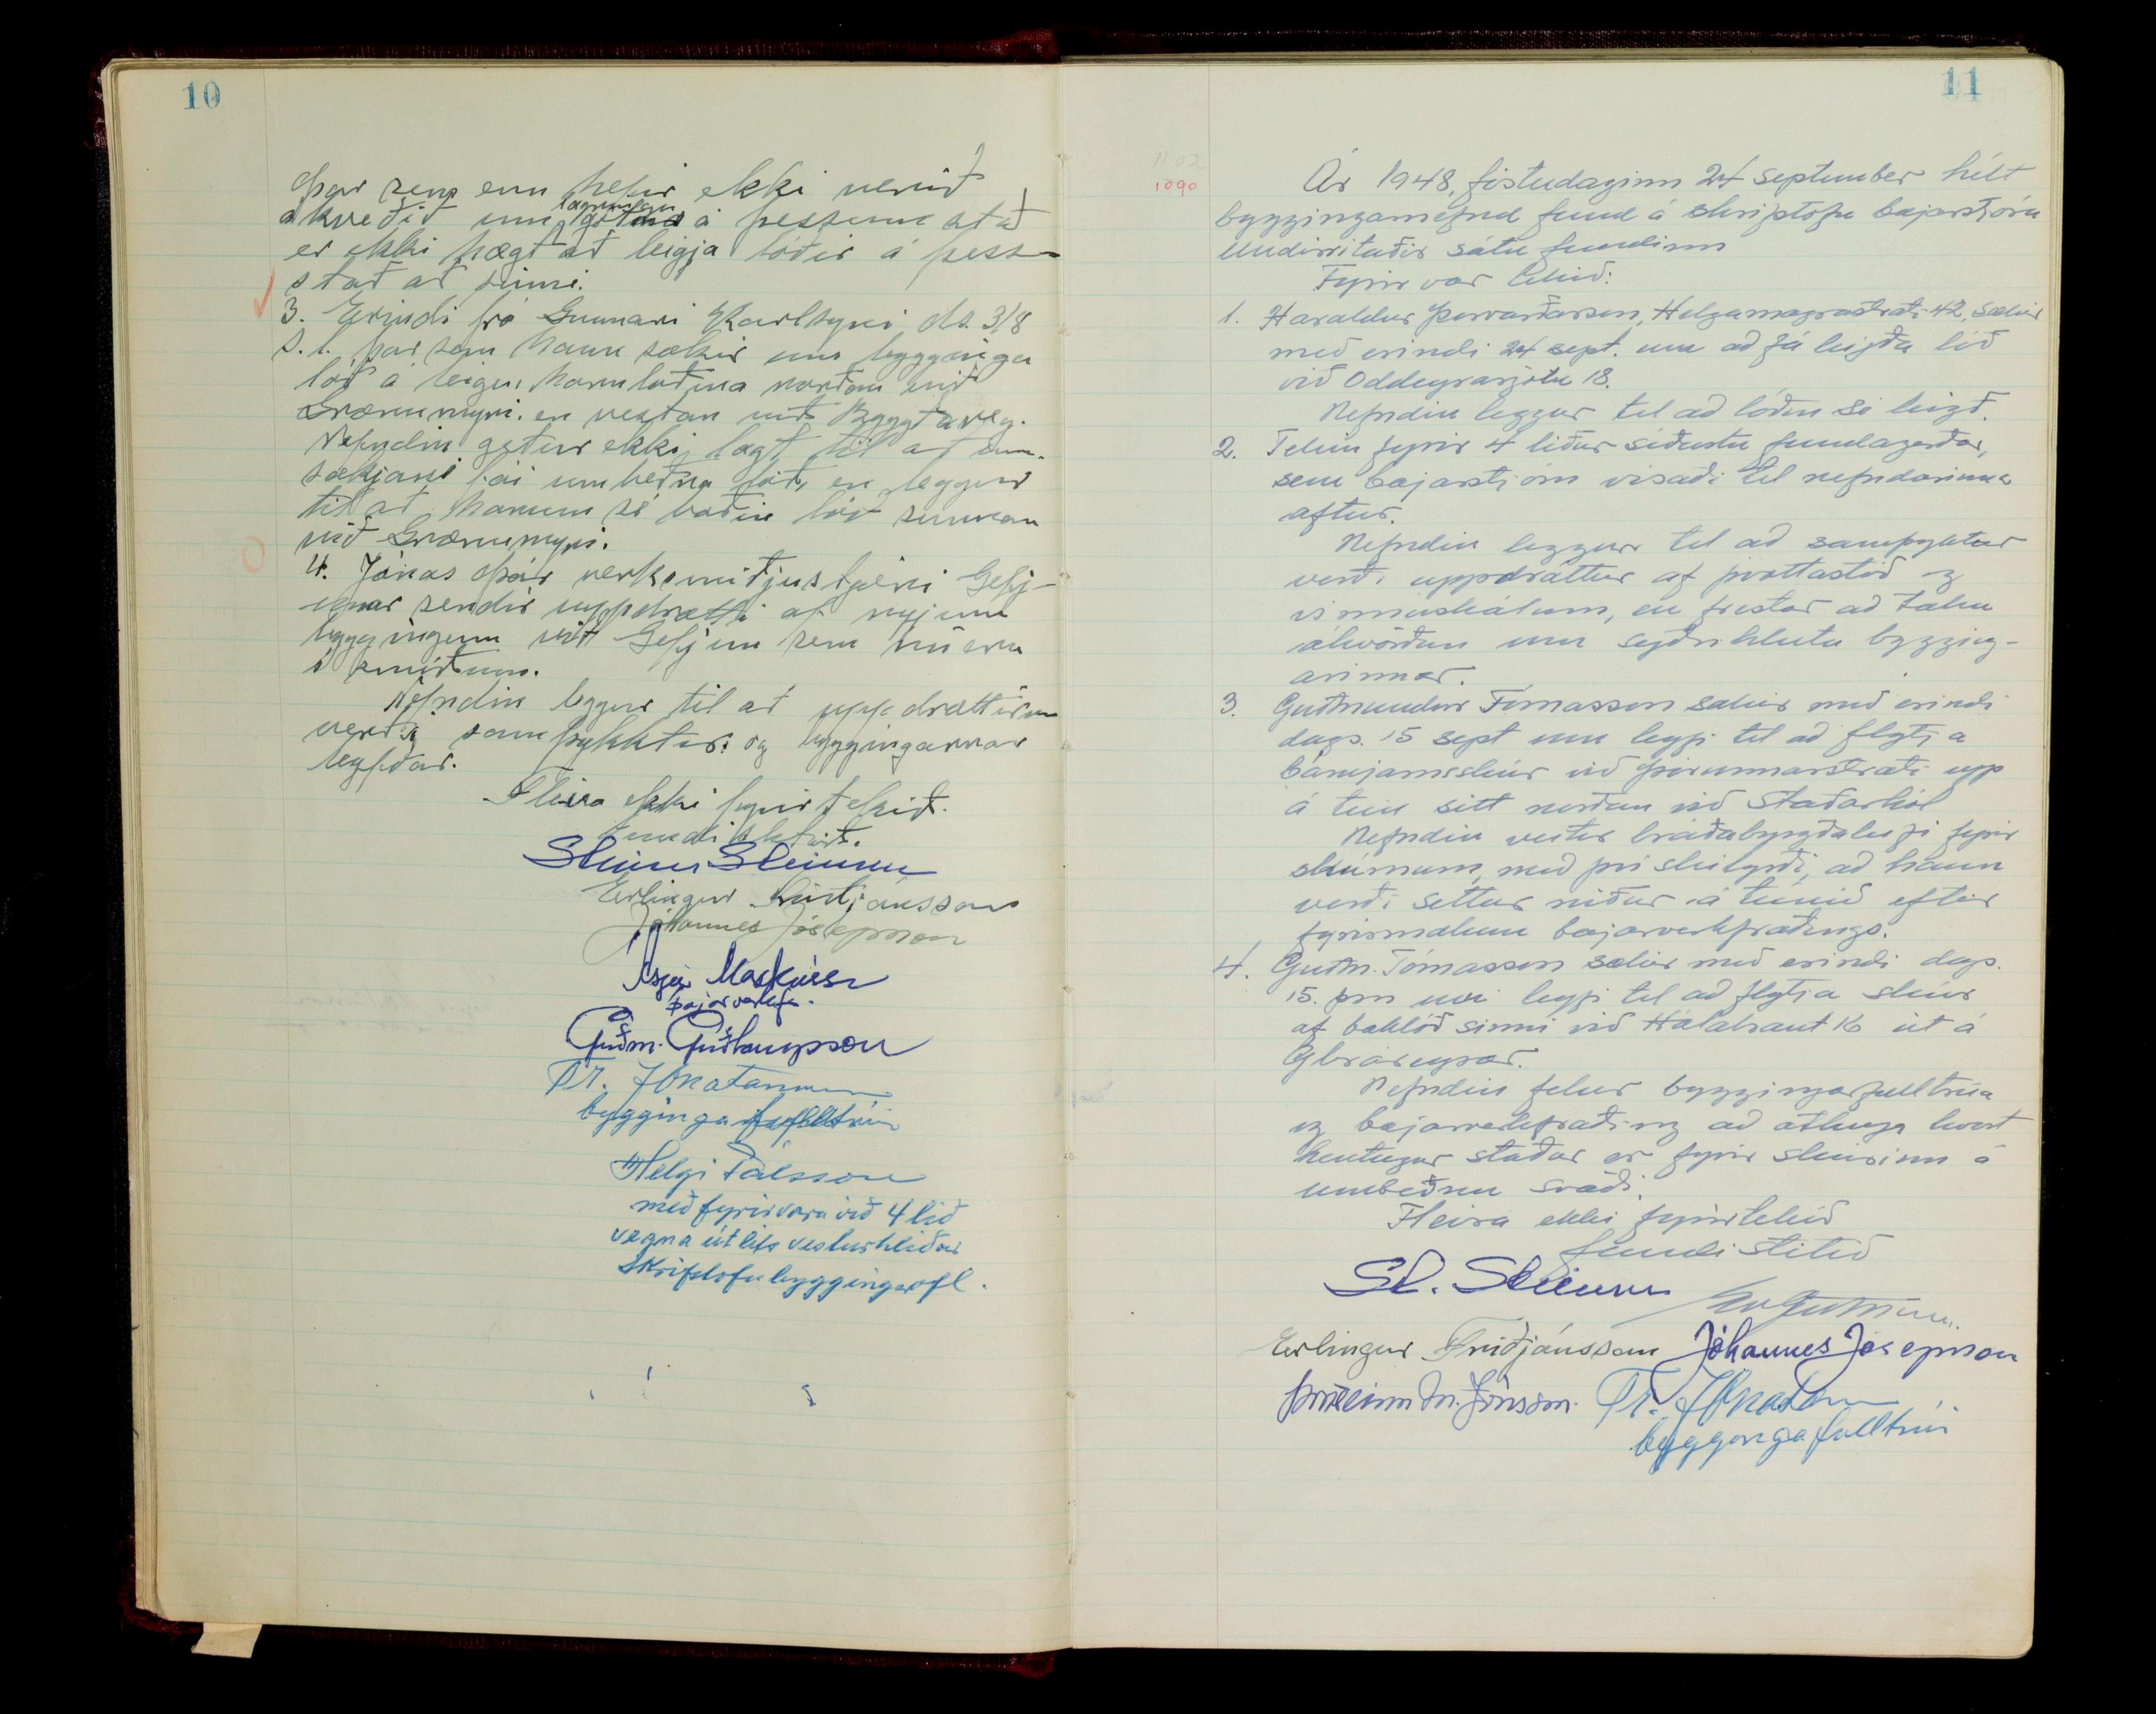 10
Þar sem enn hefir ekki verið
ákveðið um lagningu götu á þessum stað
er ekki hægt at leigja lóðir á þess-
stað að sinni.
3. Erindi frá Gunnari Karlssyni ds. 3/8
s.l. þar sem hann sækir um bygginga
lóð á leigu, hornlóðina norðan við
Grænumýri en vestan við Byggðaveg.
Nefndin getur ekki lagt til að um-
sækjandi fái umbeðna lóð, en leggur
til að honum sé boðin lóð sunnan
við Grænumýri.
4. Jónas Þór verksmiðjustjóri Gefj-
unar sendir uppdrætti af nýjum
byggingum við Gefjun sem nú eru
í smíðum.
Nefndin leggur til að uppdrættirnir
verði samþykktir og byggingarnar
leyfðar.
Fleira ekki fyrir tekið.
Fundi slitið.
Steinn Steinsen
Erlingur Friðjónsson
Jóhannes Jósepsson
Ásgeir Markússon
bæjarverkfr.
Guðm. Guðlaugsson
Tr. Jónatansson
byggingafulltrúi
Helgi Pálsson
með fyrirvara við 4 lið
vegna útlits vesturhliðar
skrifstofubyggingar ofl.
11
1102
1090
Ár 1948, föstudaginn 24 september hélt
byggingarnefnd fund á skrifstofu bæjarstjóra
Undirritaðir sátu fundinn
Fyrir var tekið:
1. Haraldur Þorvarðarson, Helgamagrastræti 42, sækir
með erindi 24 sept. um að fá leigða lóð
við Oddeyrargötu 18.
Nefndin leggur til að lóðin sé leigð.
2. Tekin fyrir 4 liður síðustu fundagerðar,
sem bæjarstjórn vísaði til nefndarinnar
aftur.
Nefndin leggur til að samþyktur
verði uppdráttur af þvottastöð og
vinnuskálum, en frestar að taka
ákvörðun um syðri hluta bygging-
arinnar.
3. Guðmundur Tómasson sækir með erindi
dags. 15 sept um leyfi til að flytja
bárujárnsskúr við Þórunnarstræti upp
á tún sitt norðan við Staðarhól
Nefndin veitir bráðabyrgðaleyfi fyrir
skúrnum, með því skilyrði, að hann
verði settur niður á túnið eftir
fyrirmælum bæjarverkfræðings.
4. Guðm. Tómasson sækir með erindi dags.
15. þm um leyfi til að flytja skúr
af baklóð sinni við Hólabraut 16 út á
Gleráreyrar.
Nefndin felur byggingarfulltrúa
og bæjarverkfræðing að athuga hvort
hentugur staður er fyrir skúrinn á
umbeðnu svæði.
Fleira ekki fyrirtekið
fundi slitið
St. Steinsen
Erlingur Friðjónsson Jóhannes Jósepsson
Þorsteinn M. Jónsson. Tr. Jónatansson
byggingafulltrúi